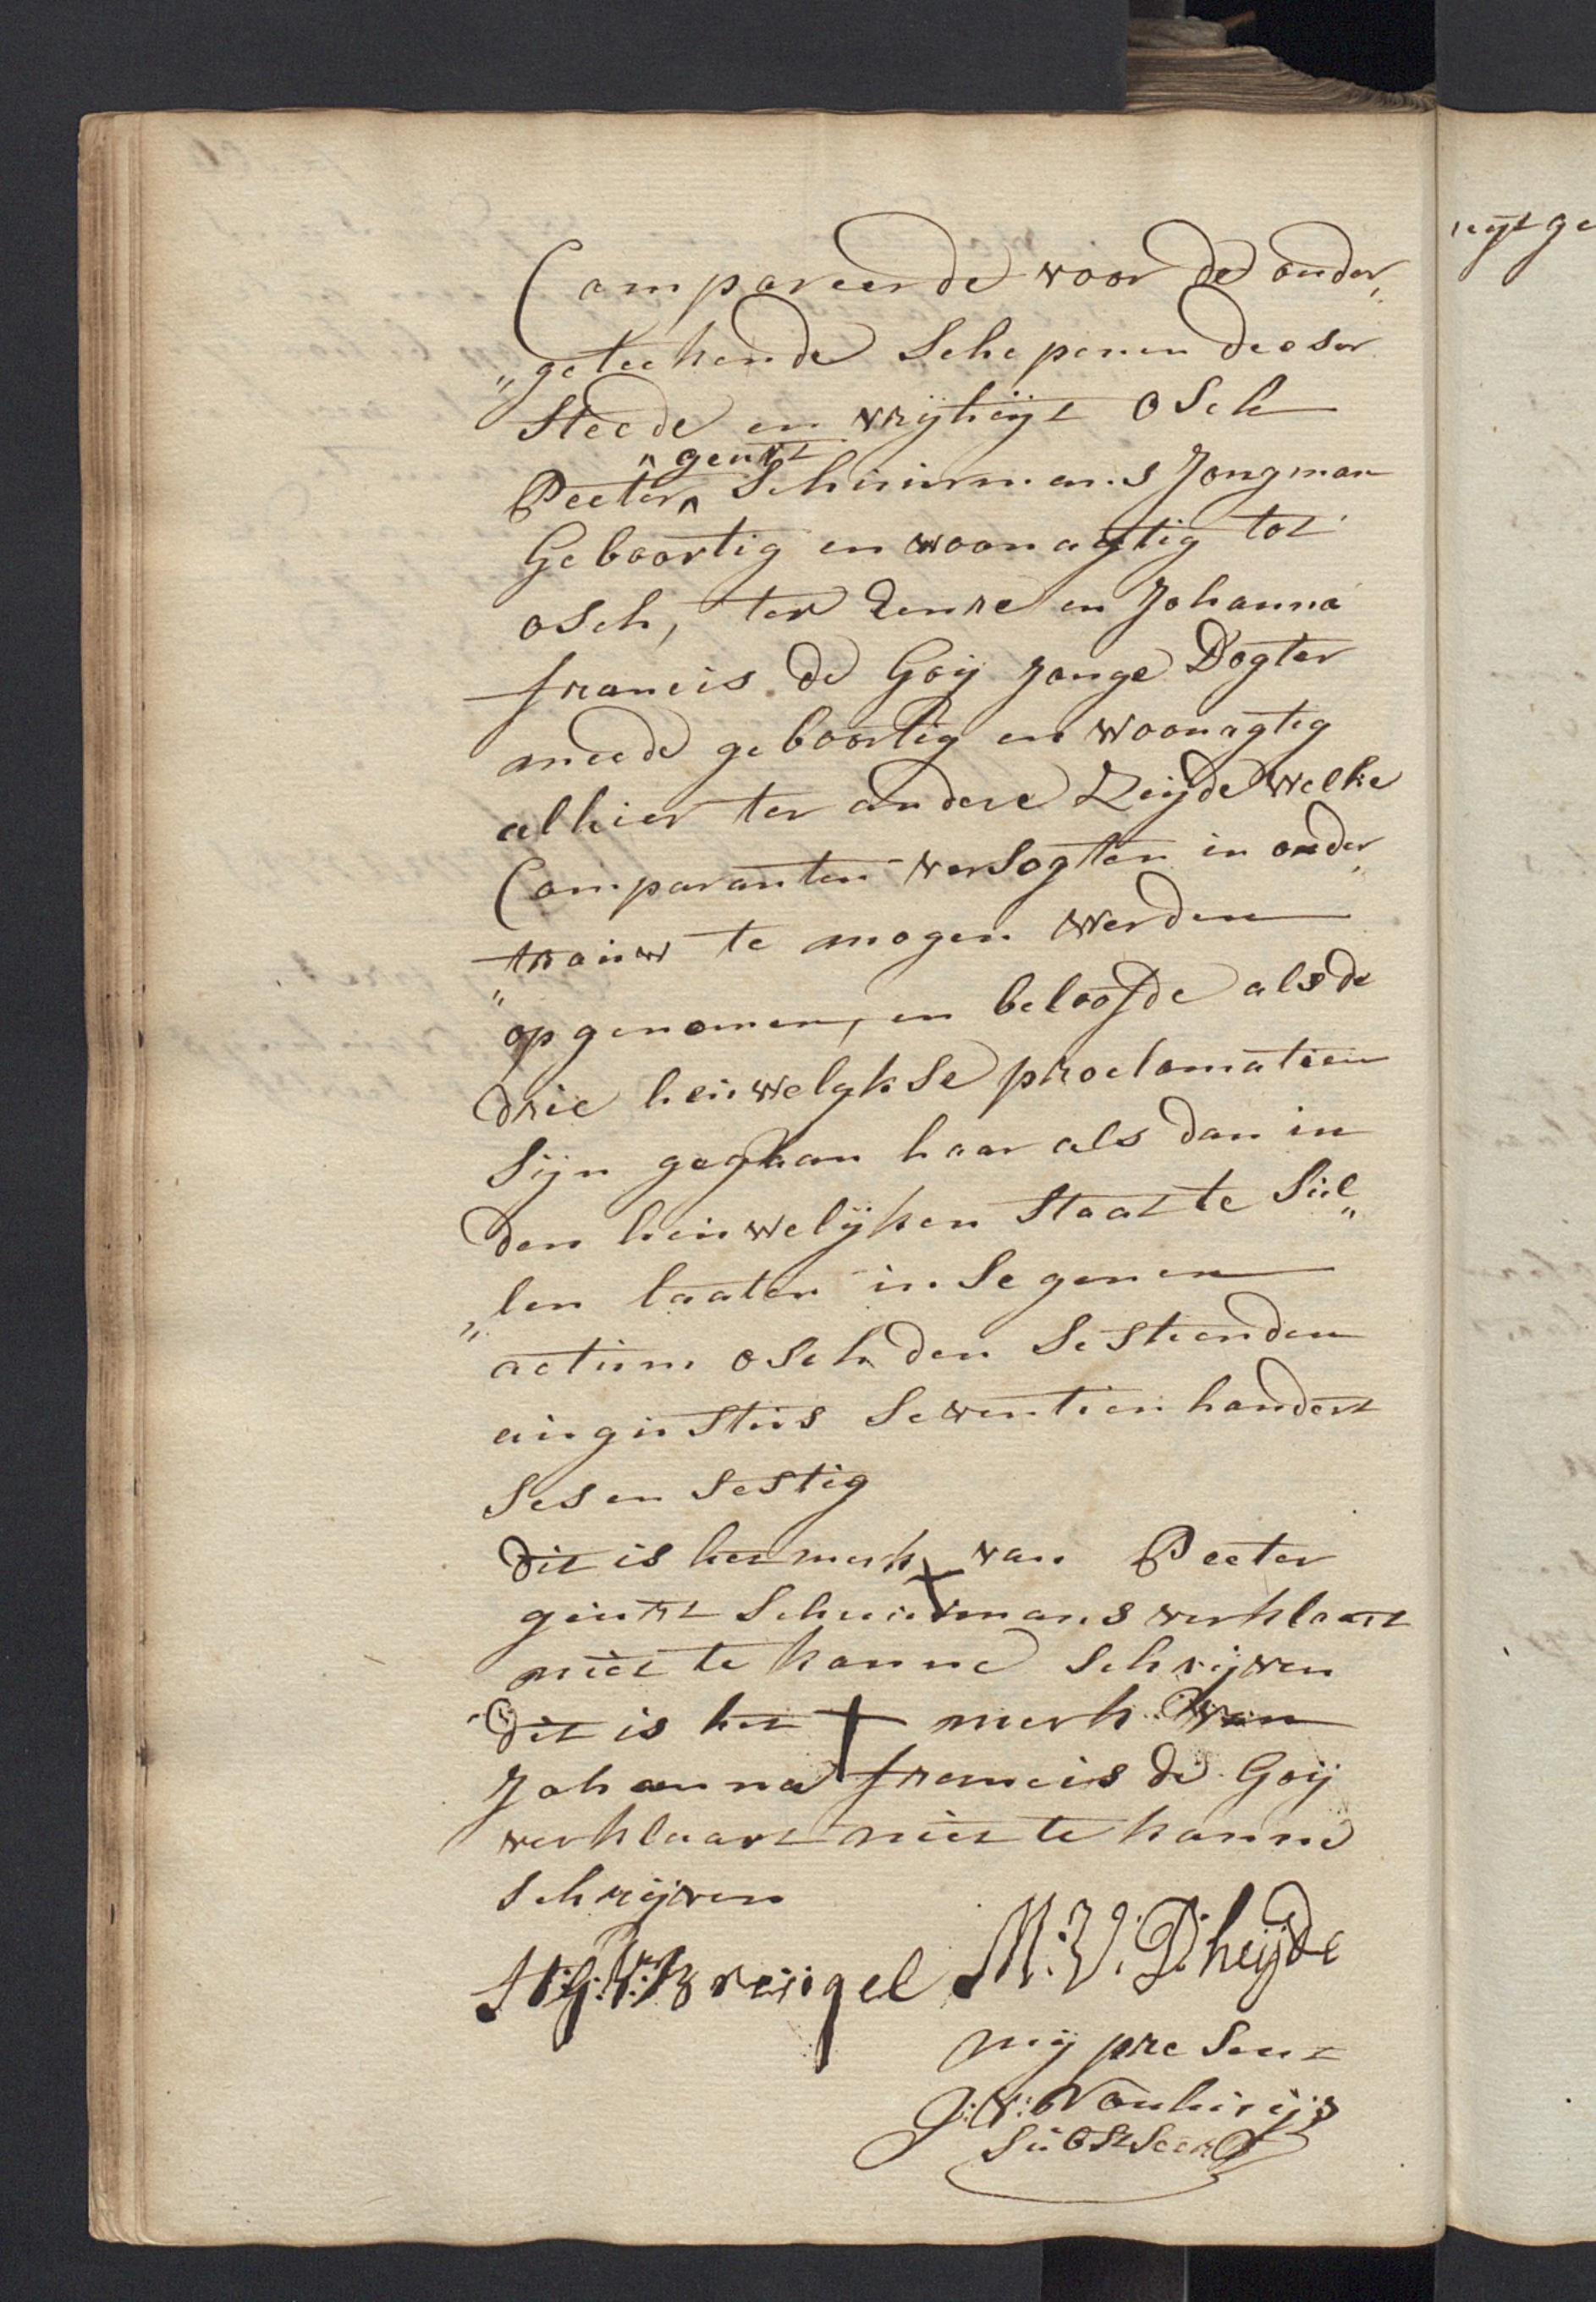 Compareerde voor de onder„
„geteekende Schepenen deeser
Steede en vrijheijt Osch
geurt
Peeter ^ Schuurmans Jongman
Geboortig en woonagtig tot
osch, ter Eenre en Johanna
francis de Goij Jonge Dogter
meede geboortig en woonagtig
alhier ter andere Zeijde welke
Comparanten versogten in onder„
„trouw te mogen werden
op genomen, en beloofde als de
drie heuwelykse proclamatien
Sijn gegaan haar als dan in
den heuwelijken Staat te Sul„
„len laaten in Segenen
actum osch den Sestienden
augustus Seventien hondert
Ses en Sestig
dit is het merk X van Peeter
geurt Schuurmans verklaart
niet te konne Schrijven
dit is het + merk van
Johanna francis de Goij
verklaart niet te konne
Schrijven
V: Breugel M: V: D: heijde
mij present
J: V: Nouhuijs
Subst Secrs